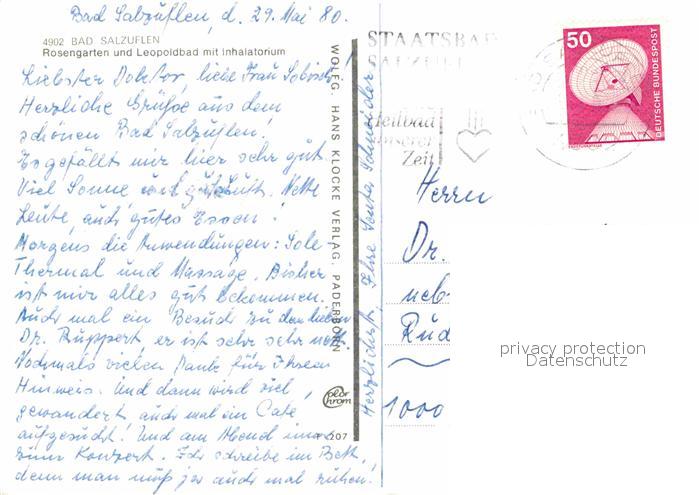 Bad Salzuflen, d. 29. Mai 80.
4902 BAD SALZUFLEN
Rosengarten und Leopoldbad mit Inhalatorium
Liebster Doktor, liebe Frau
Herzliche Grüße aus dem
schönen Bad Salzuflen!
Es gefällt mir hier sehr gut.
Viel Sonne und gute Luft. Nette
Leute, auch gutes Essen!
Morgens die Anwendungen: Sole
Thermal und Massage. Bisher
ist mir alles gut bekommen.
Auch mal ein Besuch zu dem lieben
Dr. Ruppert, er ist sehr sehr nett
Nochmals vielen Dank für Ihren
Hinweis. Und dann wird viel
gewandert, auch mal ein Café
aufgesucht! Und am Abend immer
zum Konzert. Ich schreibe im Bett,
denn man muß ja auch mal ruhen!
Herzlichst, Ihre Senta Schneider
WOLFG. HANS KLOCKE VERLAG, PADERBORN
color
chrom
207
STAATSBAD
SALZUFL
Heilbad
unserer
Zeit
50
DEUTSCHE BUNDESPOST
Herrn
Dr.
neb
Rüd
1000
privacy protection
Datenschutz